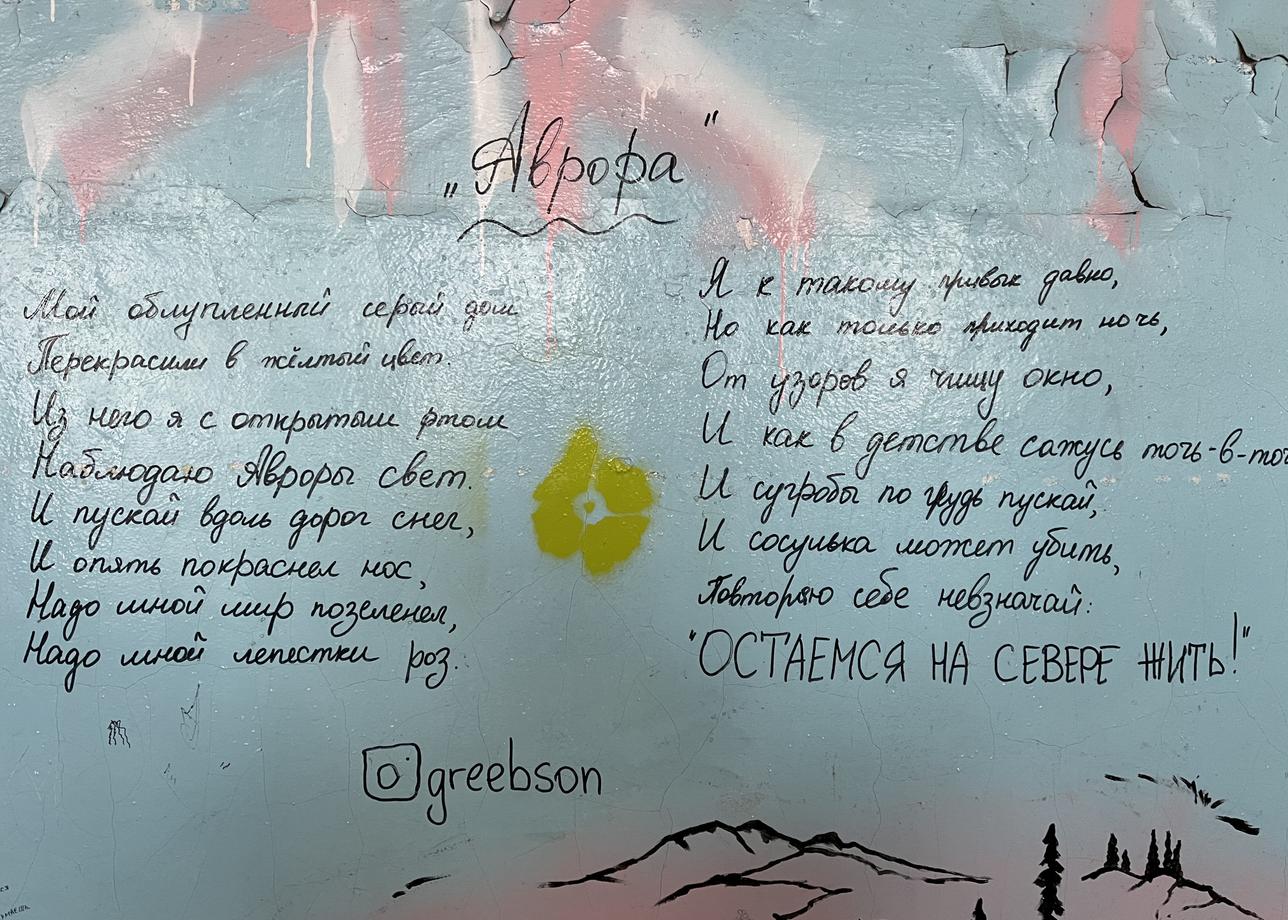 „Аврора"
Мой облупленный серый дом
Перекрасили в жёлтый цвет.
Из него я с открытым ртом
Наблюдаю Авроры свет.
И пускай вдоль дорог снег,
И опять покраснел нос,
Надо мной мир позеленел,
Надо мной лепестки роз.
Я к такому привык давно,
Но как только приходит ночь,
От узоров я чищу окно,
И как в детстве сажусь точь-в-точ
И сугробы по грудь пускай,
И сосулька может убить,
Повторяю себе невзначай:
"ОСТАЕМСЯ НА СЕВЕРЕ ЖИТЬ!"
greebson